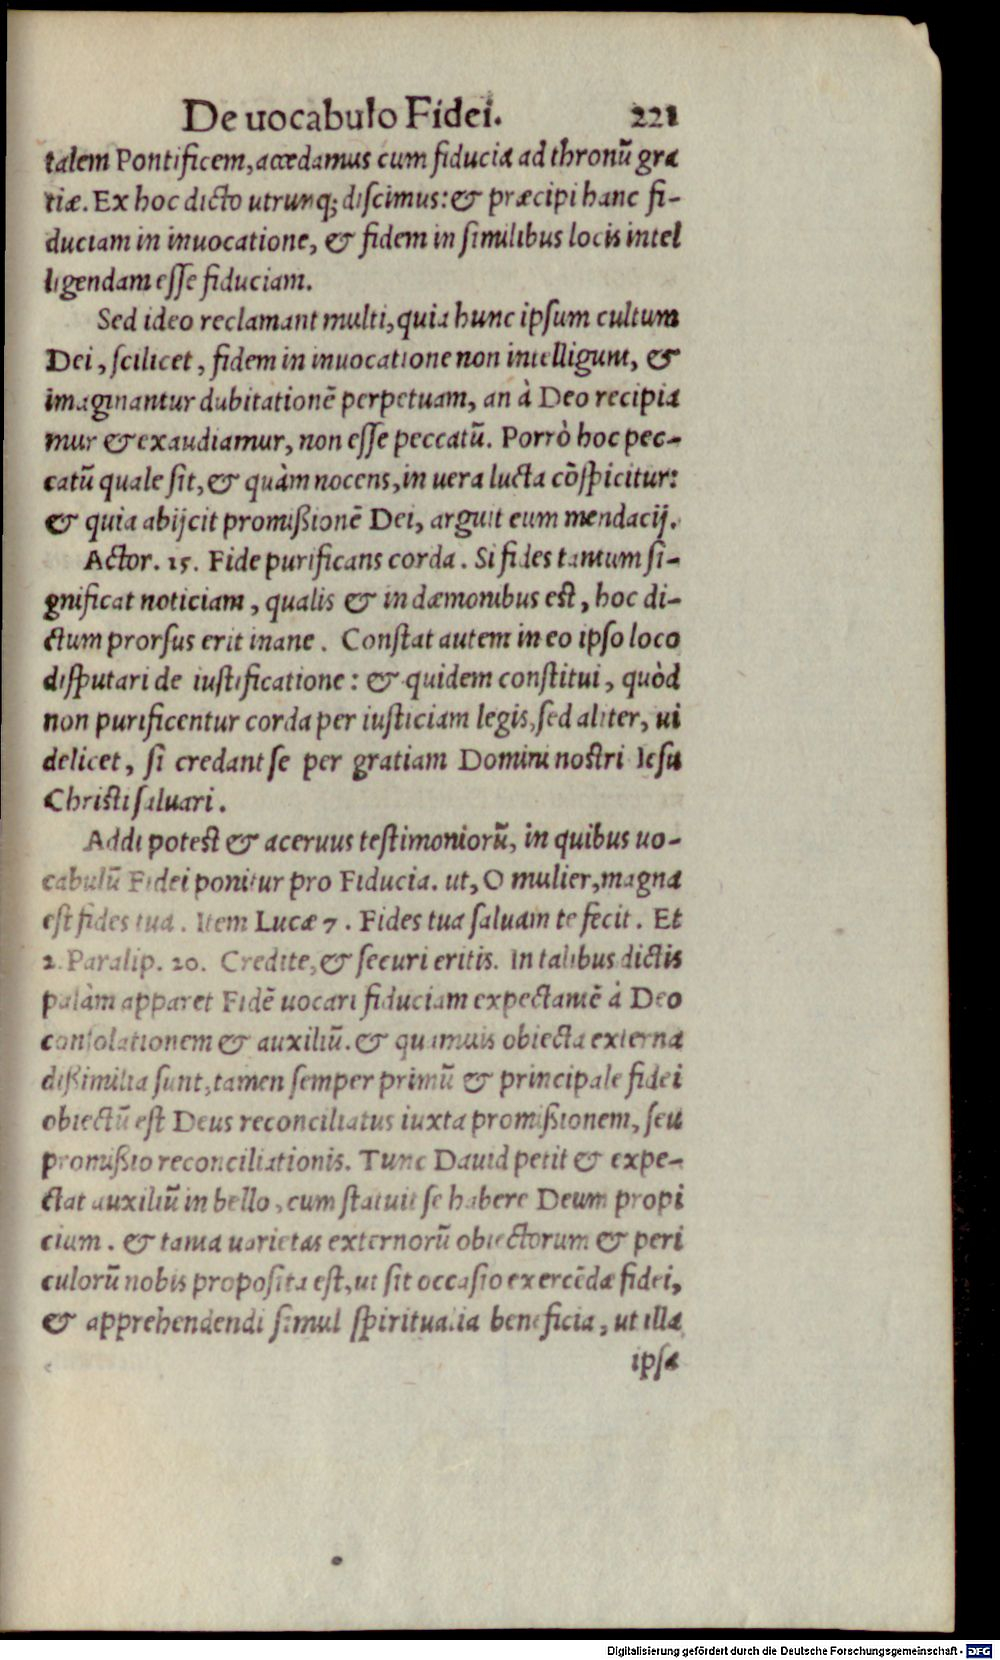 De uocabulo Fidei. 221
talem Pontificem, accedamus cum fiducia ad thronũ gra
tiæ. Ex hoc dicto utrunq; discimus: & præcipi hanc fi-
duciam in inuocatione, & fidem in similibus locis intel
ligendam esse fiduciam.
Sed ideo reclamant multi, quia hunc ipsum cultum
Dei, scilicet, fidem in inuocatione non intelligunt, &
imaginantur dubitationẽ perpetuam, an à Deo recipia
mur & exaudiamur, non esse peccatũ. Porrò hoc pec-
catũ quale sit, & quàm nocens, in uera lucta cõspicitur:
& quia abijcit promißionẽ Dei, arguit eum mendacij.
Actor. 15. Fide purificans corda. Si fides tantum si-
gnificat noticiam, qualis & in dæmonibus est, hoc di-
ctum prorsus erit inane. Constat autem in eo ipso loco
disputari de iustificatione: & quidem constitui, quòd
non purificentur corda per iusticiam legis, sed aliter, ui
delicet, si credant se per gratiam Domini nostri Iesu
Christi saluari.
Addi potest & aceruus testimoniorũ, in quibus uo-
cabulũ Fidei ponitur pro Fiducia. ut, O mulier, magna
est fides tua. Item Lucæ 7. Fides tua saluam te fecit. Et
2. Paralip. 20. Credite, & securi eritis. In talibus dictis
palàm apparet Fidẽ uocari fiduciam expectantẽ à Deo
consolationem & auxiliũ. & quamuis obiecta externa
dißimilia sunt, tamen semper primũ & principale fidei
obiectũ est Deus reconciliatus iuxta promißionem, seu
promißio reconciliationis. Tunc Dauid petit & expe-
ctat auxiliũ in bello, cum statuit se habere Deum propi
cium. & tanta uarietas externorũ obiectorum & peri
culorũ nobis proposita est, ut sit occasio exercẽdæ fidei,
& apprehendendi simul spiritualia beneficia, ut illa
ipsa
Digitalisierung gefördert durch die Deutsche Forschungsgemeinschaft - DFG